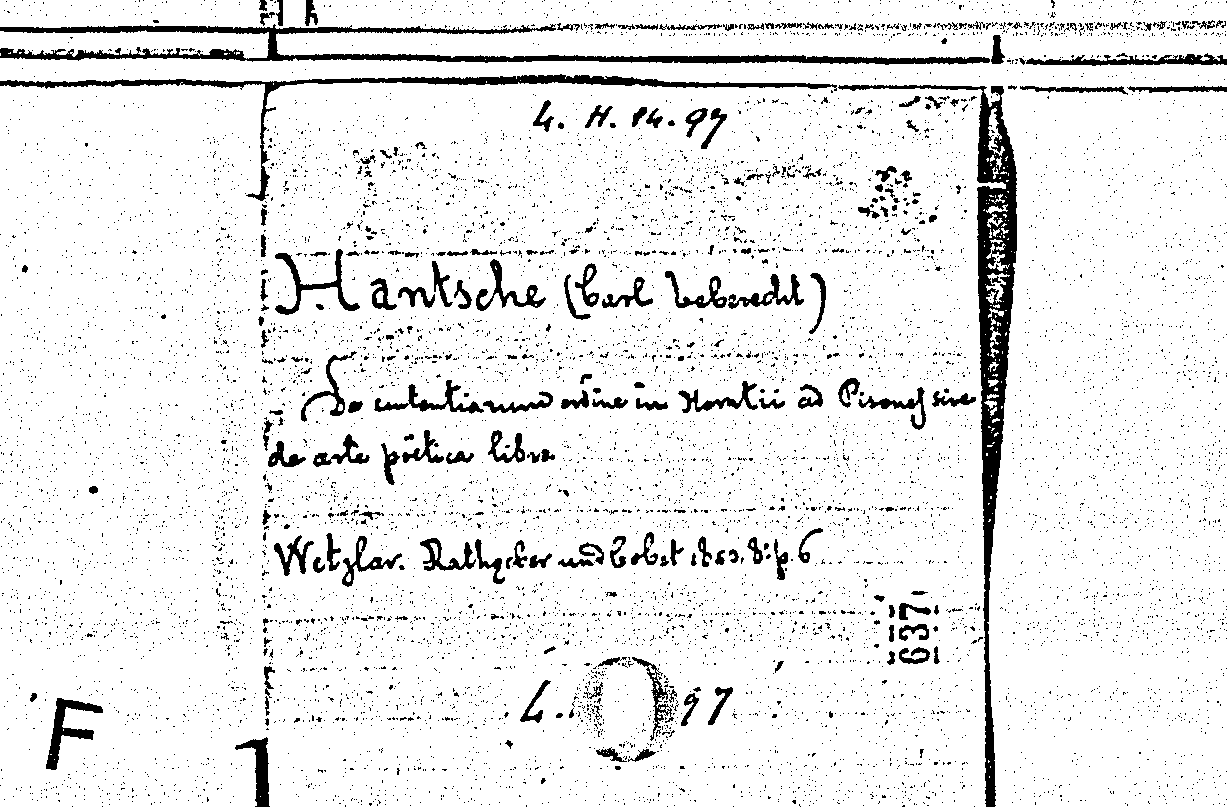 4. H. 14. 97
Hantsche (Carl Leberecht)
De sententiarum ordine in Horatii ad Pisones sive
de arte poëtica libro
Wetzlar. Rathgeber und Cobet 1853. 8: p. 6
637
4. 97
F